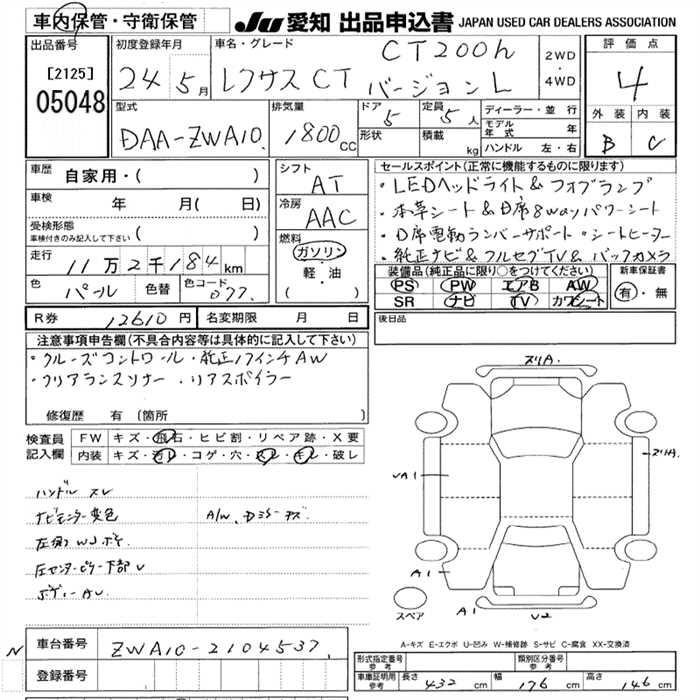 車内保管・守衛保管
JU 愛知 出品申込書 JAPAN USED CAR DEALERS ASSOCIATION
出品番号
[2125]
05048
初度登録年月
24年5月
車名・グレード
レクサスCT
CT200h
バージョンL
2WD
・
4WD
評価点
4
外装 内装
B C
型式
DAA-ZWA10
排気量
1800cc
ドア 5
形状
定員 5人
積載 kg
ディーラー・並行
モデル年式 年
ハンドル 左・右
車歴 自家用・( )
車検 年 月( 日)
受検形態
車検付きのみ記入して下さい ( )
走行 11万2千184km
色 パール 色替 色コード 077
シフト
AT
冷房
AAC
燃料
ガソリン
・
軽・油
( )
セールスポイント(正常に機能するものに限ります)
・LEDヘッドライト&フォグランプ
・本革シート&D席8wayパワーシート
・D席電動ランバーサポート・シートヒーター
・純正ナビ&フルセグTV&バックカメラ
装備品(純正品に限り○をつけてください) 新車保証書
PS PW エアB AW
SR ナビ TV カワシート
有・無
R券 12610円 名変期限 月 日
後日品
注意事項申告欄(不具合内容等は具体的に記入して下さい)
・クルーズコントロール・純正17インチAW
・クリアランスソナー・リアスポイラー
修復歴 有(箇所
検査員記入欄
FW キズ・飛石・ヒビ割・リペア跡・X要
内装 キズ・汚レ・コゲ・穴・スレ・キレ・破レ
ハンドル スレ
ナビモニター変色
A/W、Dミラーキズ
ズリA
ズリA
A1
A1
スペア
A-キズ E-エクボ U-凹み W-補修跡 S-サビ C-腐食 XX-交換済
N
車台番号 ZWA10-2104537
登録番号
形式指定番号 参考
類別区分番号 参考
車庫証明用 参考 長さ 432cm 幅 176cm 高さ 146cm